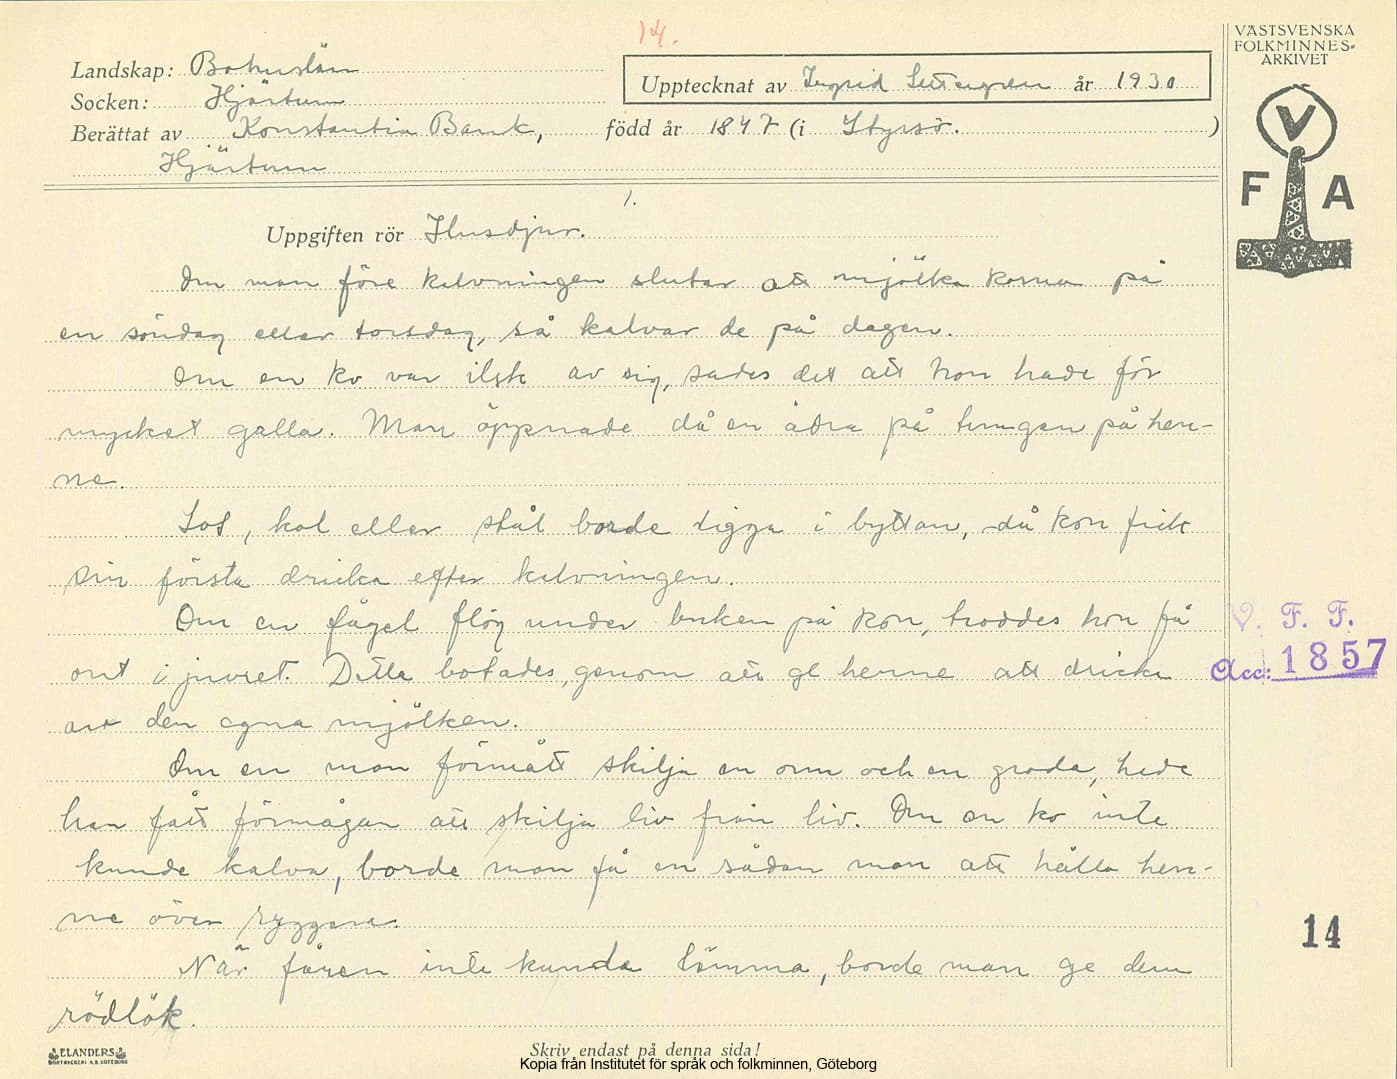 14.
Landskap: Bohuslän
Socken: Hjärtum
Upptecknat av Ingrid år 1930
Berättat av Konstantia Bank, född år 1847 (i Styrsö. )
Hjärtum
1.
Uppgiften rör Husdjur.
Om man före kalvningen slutar att mjölka korna på
en söndag eller torsdag, så kalvar de på dagen.
Om en ko var ilsk av sig, sades det att hon hade för
mycket galla. Man öppnade då en ådra på tungan på hen-
ne.
Sot, kol eller stål borde ligga i byttan, då kon fick
sin första dricka efter kalvningen.
Om en fågel flög under buken på kon, troddes hon få
ont i juvret. Detta botades, genom att ge henne att dricka
av den egna mjölken.
Om en man förmått skilja en orm och en groda, hade
han fått förmågan att skilja liv från liv. Om en ko inte
kunde kalva, borde man få en sådan man att hålla hen-
ne över ryggen.
När fåren inte kunde lämma, borde man ge dem
rödlök.
Skriv endast på denna sida!
ELANDERS
BOKTRYCKERI A.B. GÖTEBORG
VÄSTSVENSKA
FOLKMINNES-
ARKIVET
V
F A
V. F. F.
Acc: 1857
14
Kopia från Institutet för språk och folkminnen, Göteborg